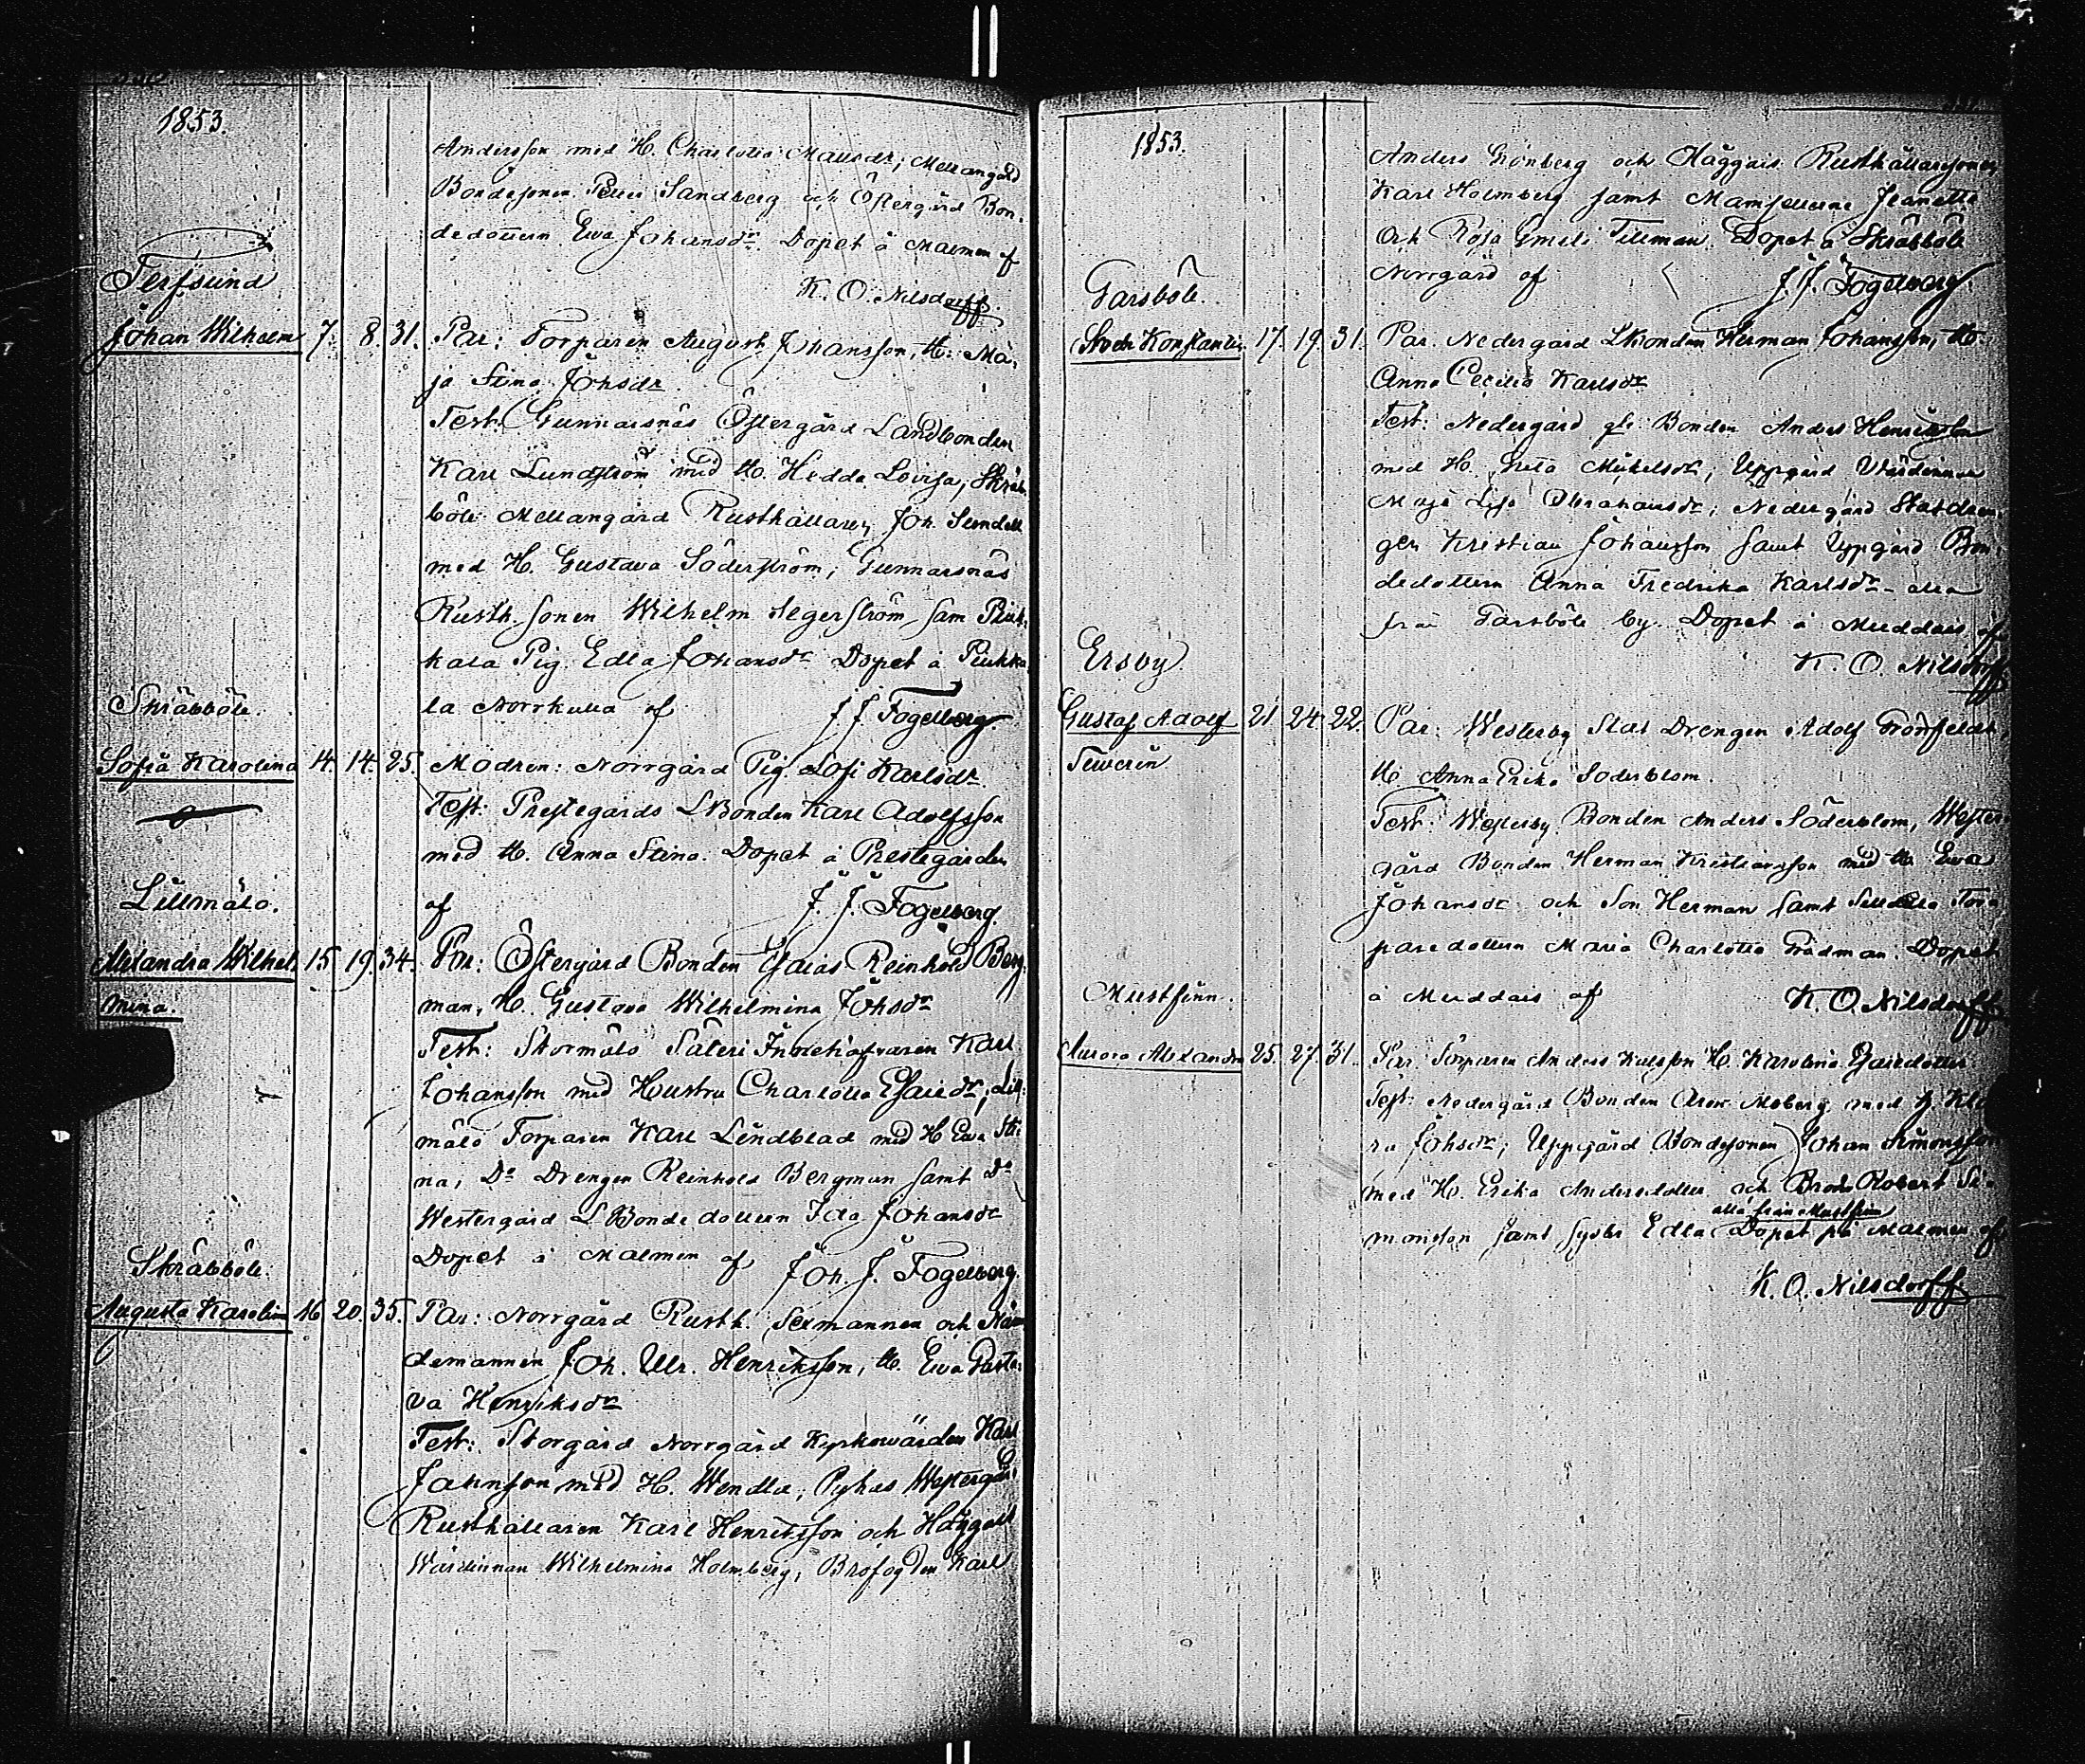 1853.
Andersson med H. Charlotta Mattsdr; Mellangård
Bondesonen Petter Sandberg och Östergård Bon-
dedottern Ewa Johansdr. Dopet å Malmen af
K. O. Nilsdorff.
Terfsund
Johan Wilhelm 7. 8. 31. Par: Torparen August Johansson, H. Ma-
ja Stina Johsdr
Test: Gunnarsnäs Östergård Landbonden
Karl Lundström med H. Hedda Lovisa, Skräb-
böle Mellangård Rusthållaren Joh. Sundell
med H. Gustava Söderström; Gunnarsnäs
Rusth. sonen Wilhelm Segerström sam
kala Pig. Edla Johansdr Dopet å
la Norrkulla af J. J. Fogelberg.
Skräbböle.
Sofia Karolina 14. 14. 25. Modren: Norrgård Pig. Sofi Karlsdr
Test: Prestegårds LBonden Karl Adolfsson
med H. Anna Stina. Dopet å Prestegården
af J. J. Fogelberg.
Lillmälo.
Alexandra Wilhel- 15. 19. 34. Par: Östergård Bonden Esaias Reinhold Berg-
mina. man, H. Gustava Wilhelmina Johsdr
Test: Stormälö Säteri Karl
Johansson med Hustru Charlotta Esaiedr; Lill-
mälö Torparen Karl Lindblad med H Ewa Sti-
na; Do Drengen Reinhold Bergman samt Do
Westergård LBondedottern Ida Johansdr
Dopet å Malmen af Joh. J. Fogelberg.
Skräbböle.
Augusta Karolina 16. 20. 35. Par: Norrgård Rusth. Sexmannen och Näm-
demannen Joh. Ulr. Henriksson, H. Ewa Gusta-
va Henriksdr
Test: Storgård Norrgård Kyrkowärden Karl
Jahnson med H. Wendla; Pyhas Westergård
Rusthållaren Karl Henriksson och Häggais
Wärdinnan Wilhelmina Holmberg; Brofogden Karl
1853.
Anders Grönberg och Häggais Rusthållaresonen
Karl Holmberg samt Mamsellerna Jeanette
och Rosa Emeli Tilleman. Dopet å Skräbböle
Norrgård af J. J. Fogelberg
Garsböle.
Konstantin 17. 19. 31. Par. Nedergård LBonden Herman Johansson, H.
Anna Cecilia Karlsdr
Test: Nedergård gle Bonden Anders Henriksson
med H. Greta Mickelsdr; Uppgård Wärdinnan
Maja Lisa Abrahamsdr; Nedergård Statdren-
gen Kristian Johansson samt Uppgård Bon-
dedottern Anna Fredrika Karlsdr – alla
från Garsböle by. Dopet å Muddais af
K. O. Nilsdorff
Ersby.
Gustaf Adolf 21. 24. 22. Par. Westerby Stat Drengen Adolf Grönfeldt
Sewerin H. Anna Erika Söderblom
Test: Westerby Bonden Anders Söderblom, Wester-
gård Bonden Herman Kristiansson med H. Ewa
Johansdr och Son Herman samt Tor-
paredottern Maria Charlotta Grådman. Dopet
å Muddais af K. O. Nilsdorff
Mustfinn.
Aurora Alexandra 25. 27. 31. Par. Torparen Anders Karlsson H. Karolina Esaiedotter
Test: Nedergård Bonden Moberg med H. Kla-
ra Johsdr; Uppgård Bondesonen Johan Simonsson
med H. Erika Andersdotter och Brodr Robert Si-
alla från Mustfinn
monsson samt Syster Edla. Dopet på Malmen af
K. O. Nilsdorff